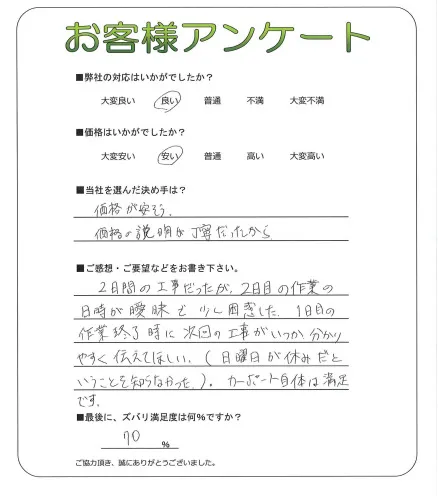 お客様アンケート
■弊社の対応はいかがでしたか？
大変良い　良い　普通　不満　大変不満
■価格はいかがでしたか？
大変安い　安い　普通　高い　大変高い
■当社を選んだ決め手は？
価格が安そう、
価格の説明が丁寧だったから
■ご感想・ご要望などをお書き下さい。
2日間の工事だったが、2日目の作業の
日時が曖昧で少し困惑した。1日目の
作業終了時に次回の工事がいつか分かり
やすく伝えてほしい。(日曜日が休みだと
いうことを知らなかった)。カーポート自体は満足
です。
■最後に、ズバリ満足度は何%ですか？
70 %
ご協力頂き、誠にありがとうございました。